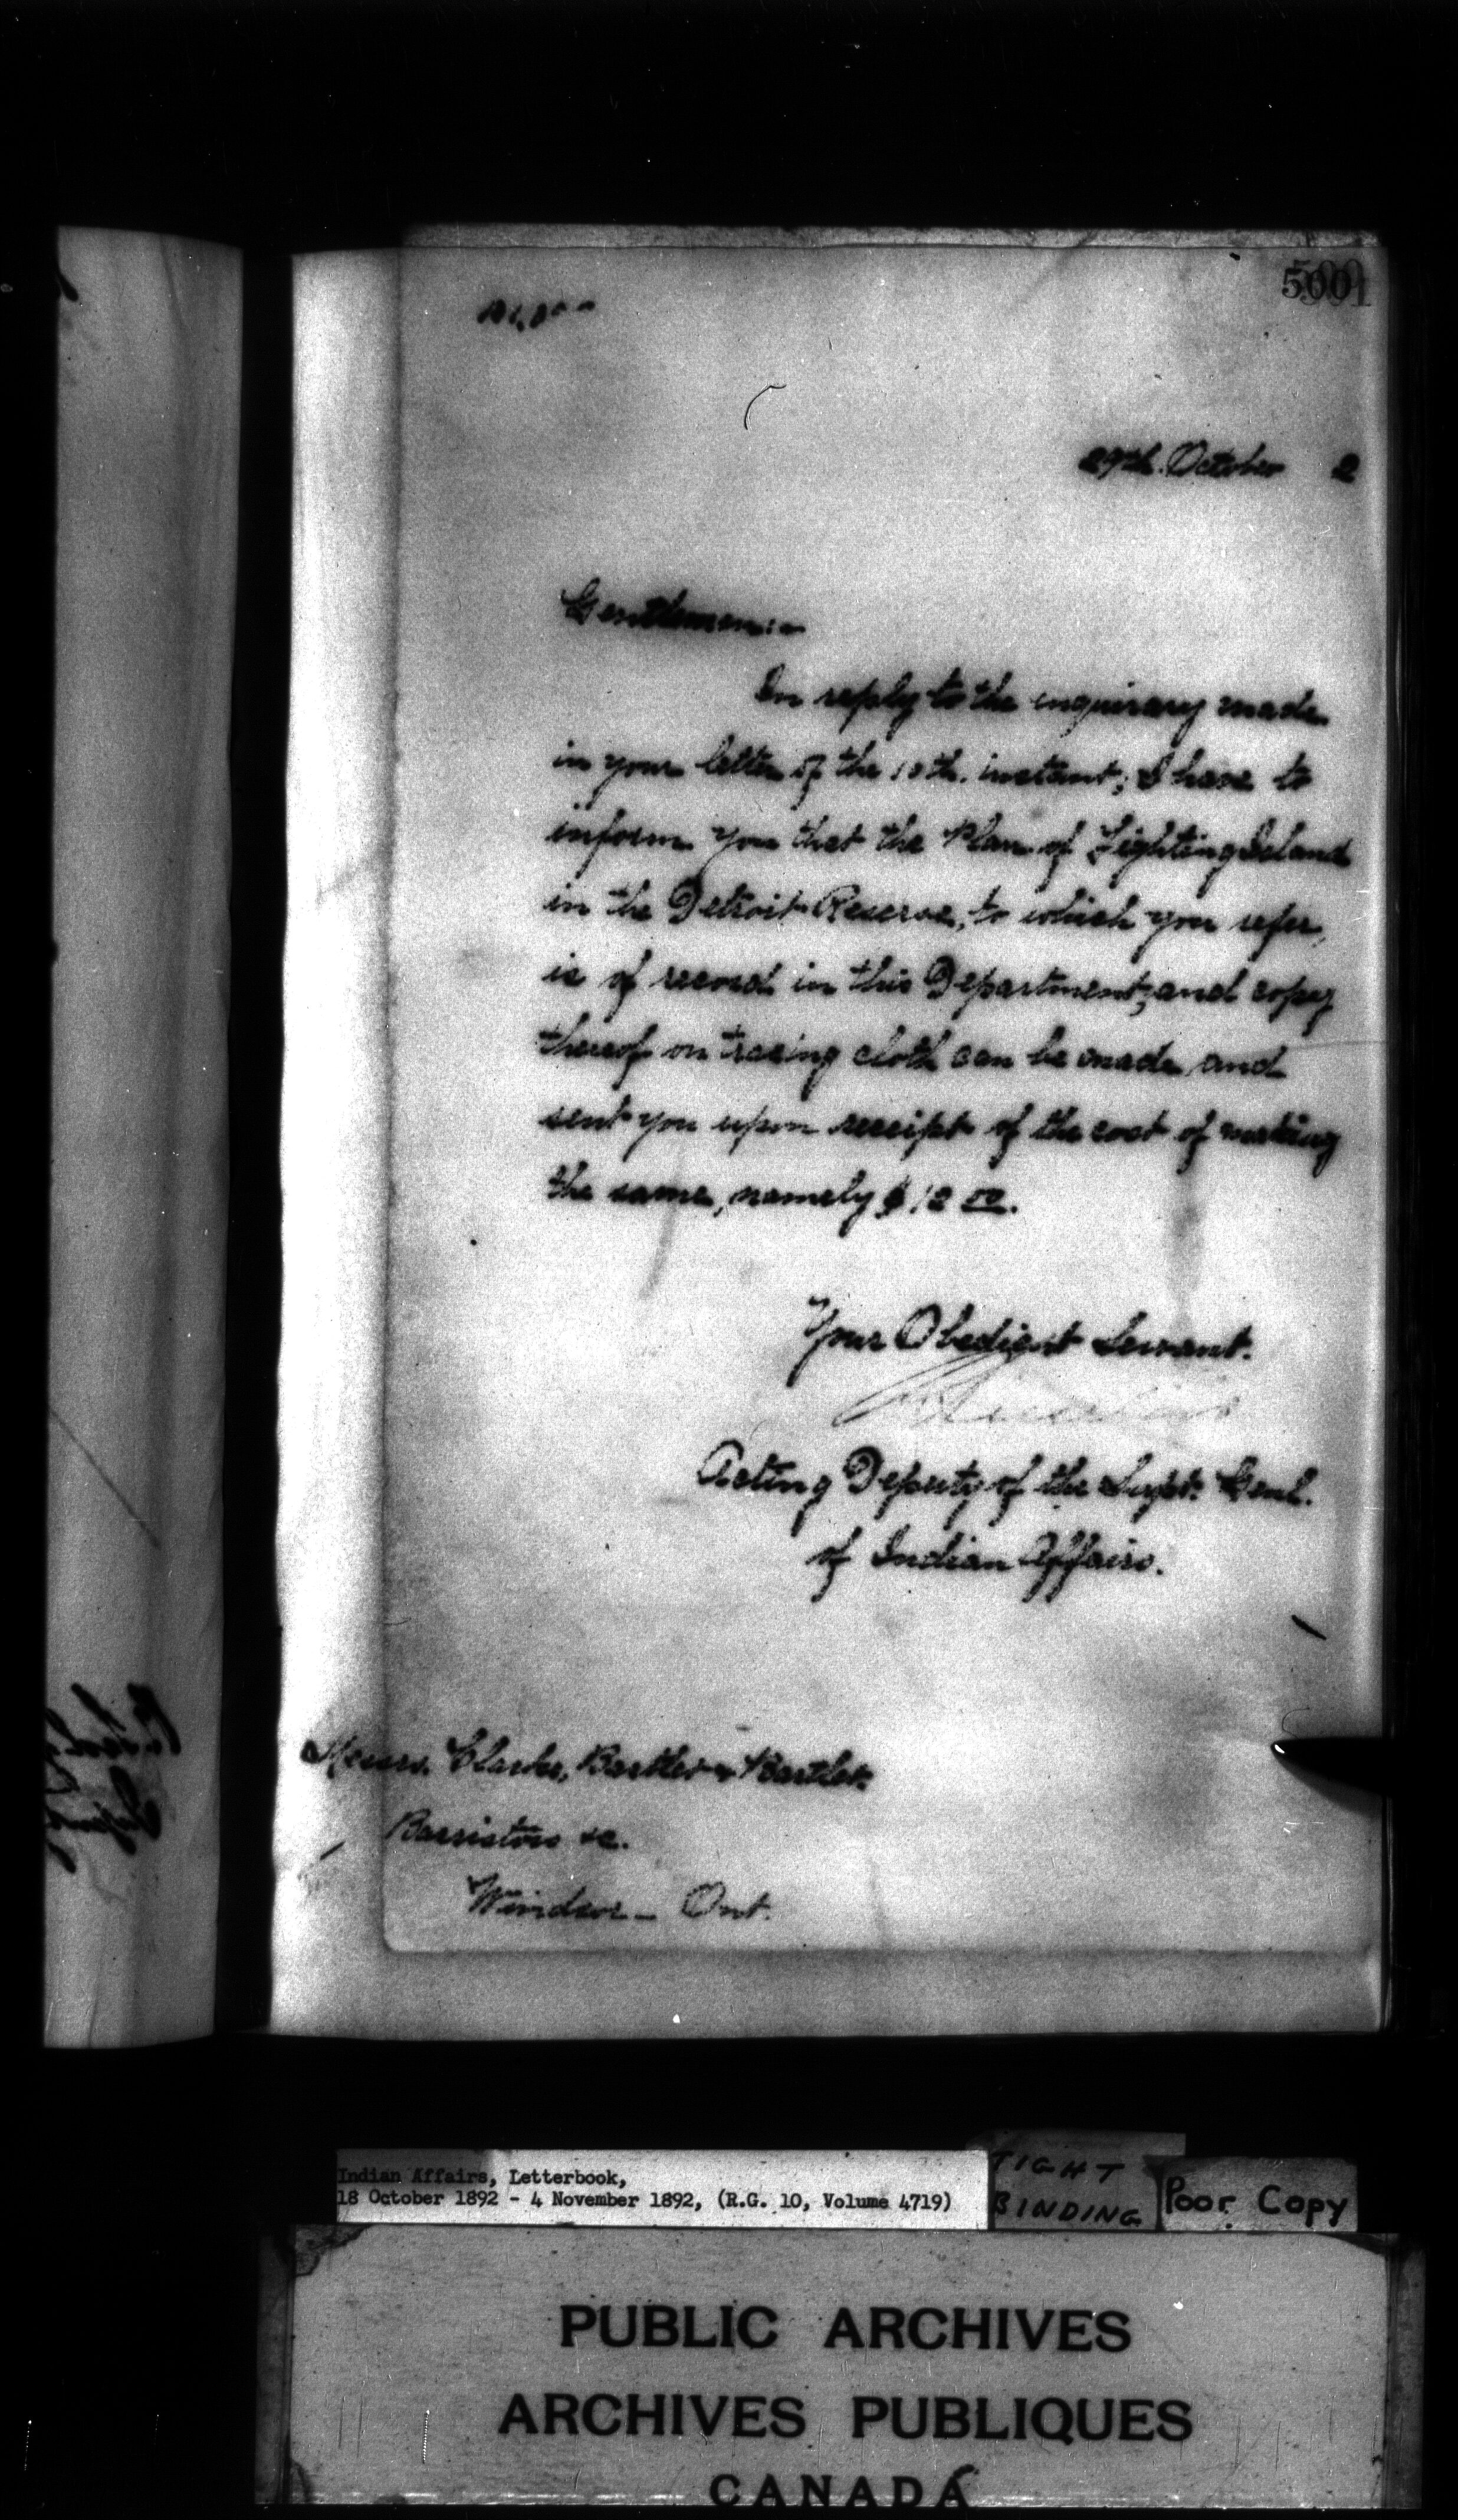 29th. October 2
Gentlemen:-
In reply to the inquirary made
in your letter of the 10th. instant, I have to
inform you that the Plan of Fighting Island
in the Detroit Reserve, to which you refer,
is of record in this Department, and copy
thereof on tracing cloth can be made and
sent you upon receipt of the cost of making
the same, namely $12 00.
Your Obedient Servant.
Acting Deputy of the Supt. Genl.
of Indian Affairs.
Messrs. Clarke, Bartlet & Bartlet
Barristers &c.
Windsor - Ont.
Indian Affairs, Letterbook,
18 October 1892 - 4 November 1892, (R.G. 10, Volume 4719)
TIGHT
BINDING
Poor Copy
PUBLIC ARCHIVES
ARCHIVES PUBLIQUES
CANADA